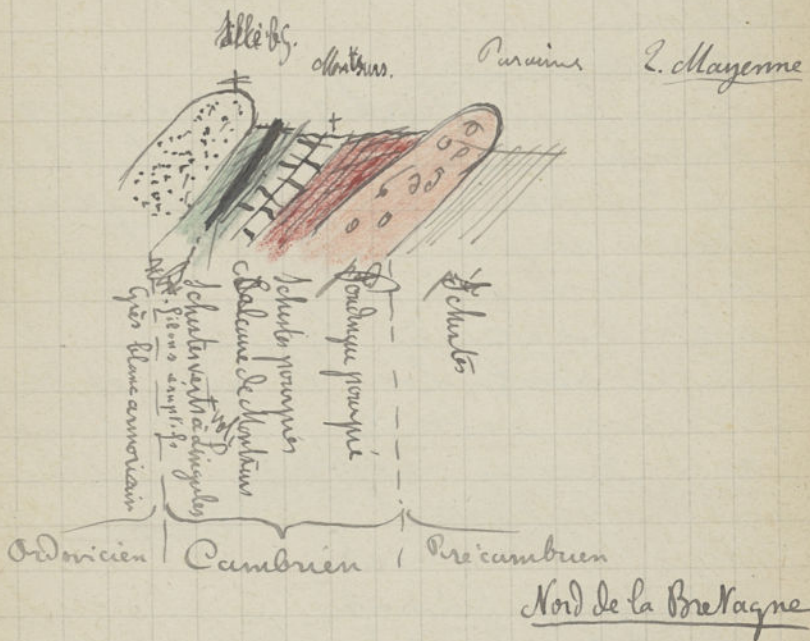 Sillé le G.
Montsurs.
2. Mayenne
Grès blanc armoricain
et filons éruptifs
Schistes verts à Lingules
Calcaire de Montsurs
Schistes pourprés
Poudingue pourpré
Schistes
Ordovicien
Cambrien
Précambrien
Nord de la Bretagne